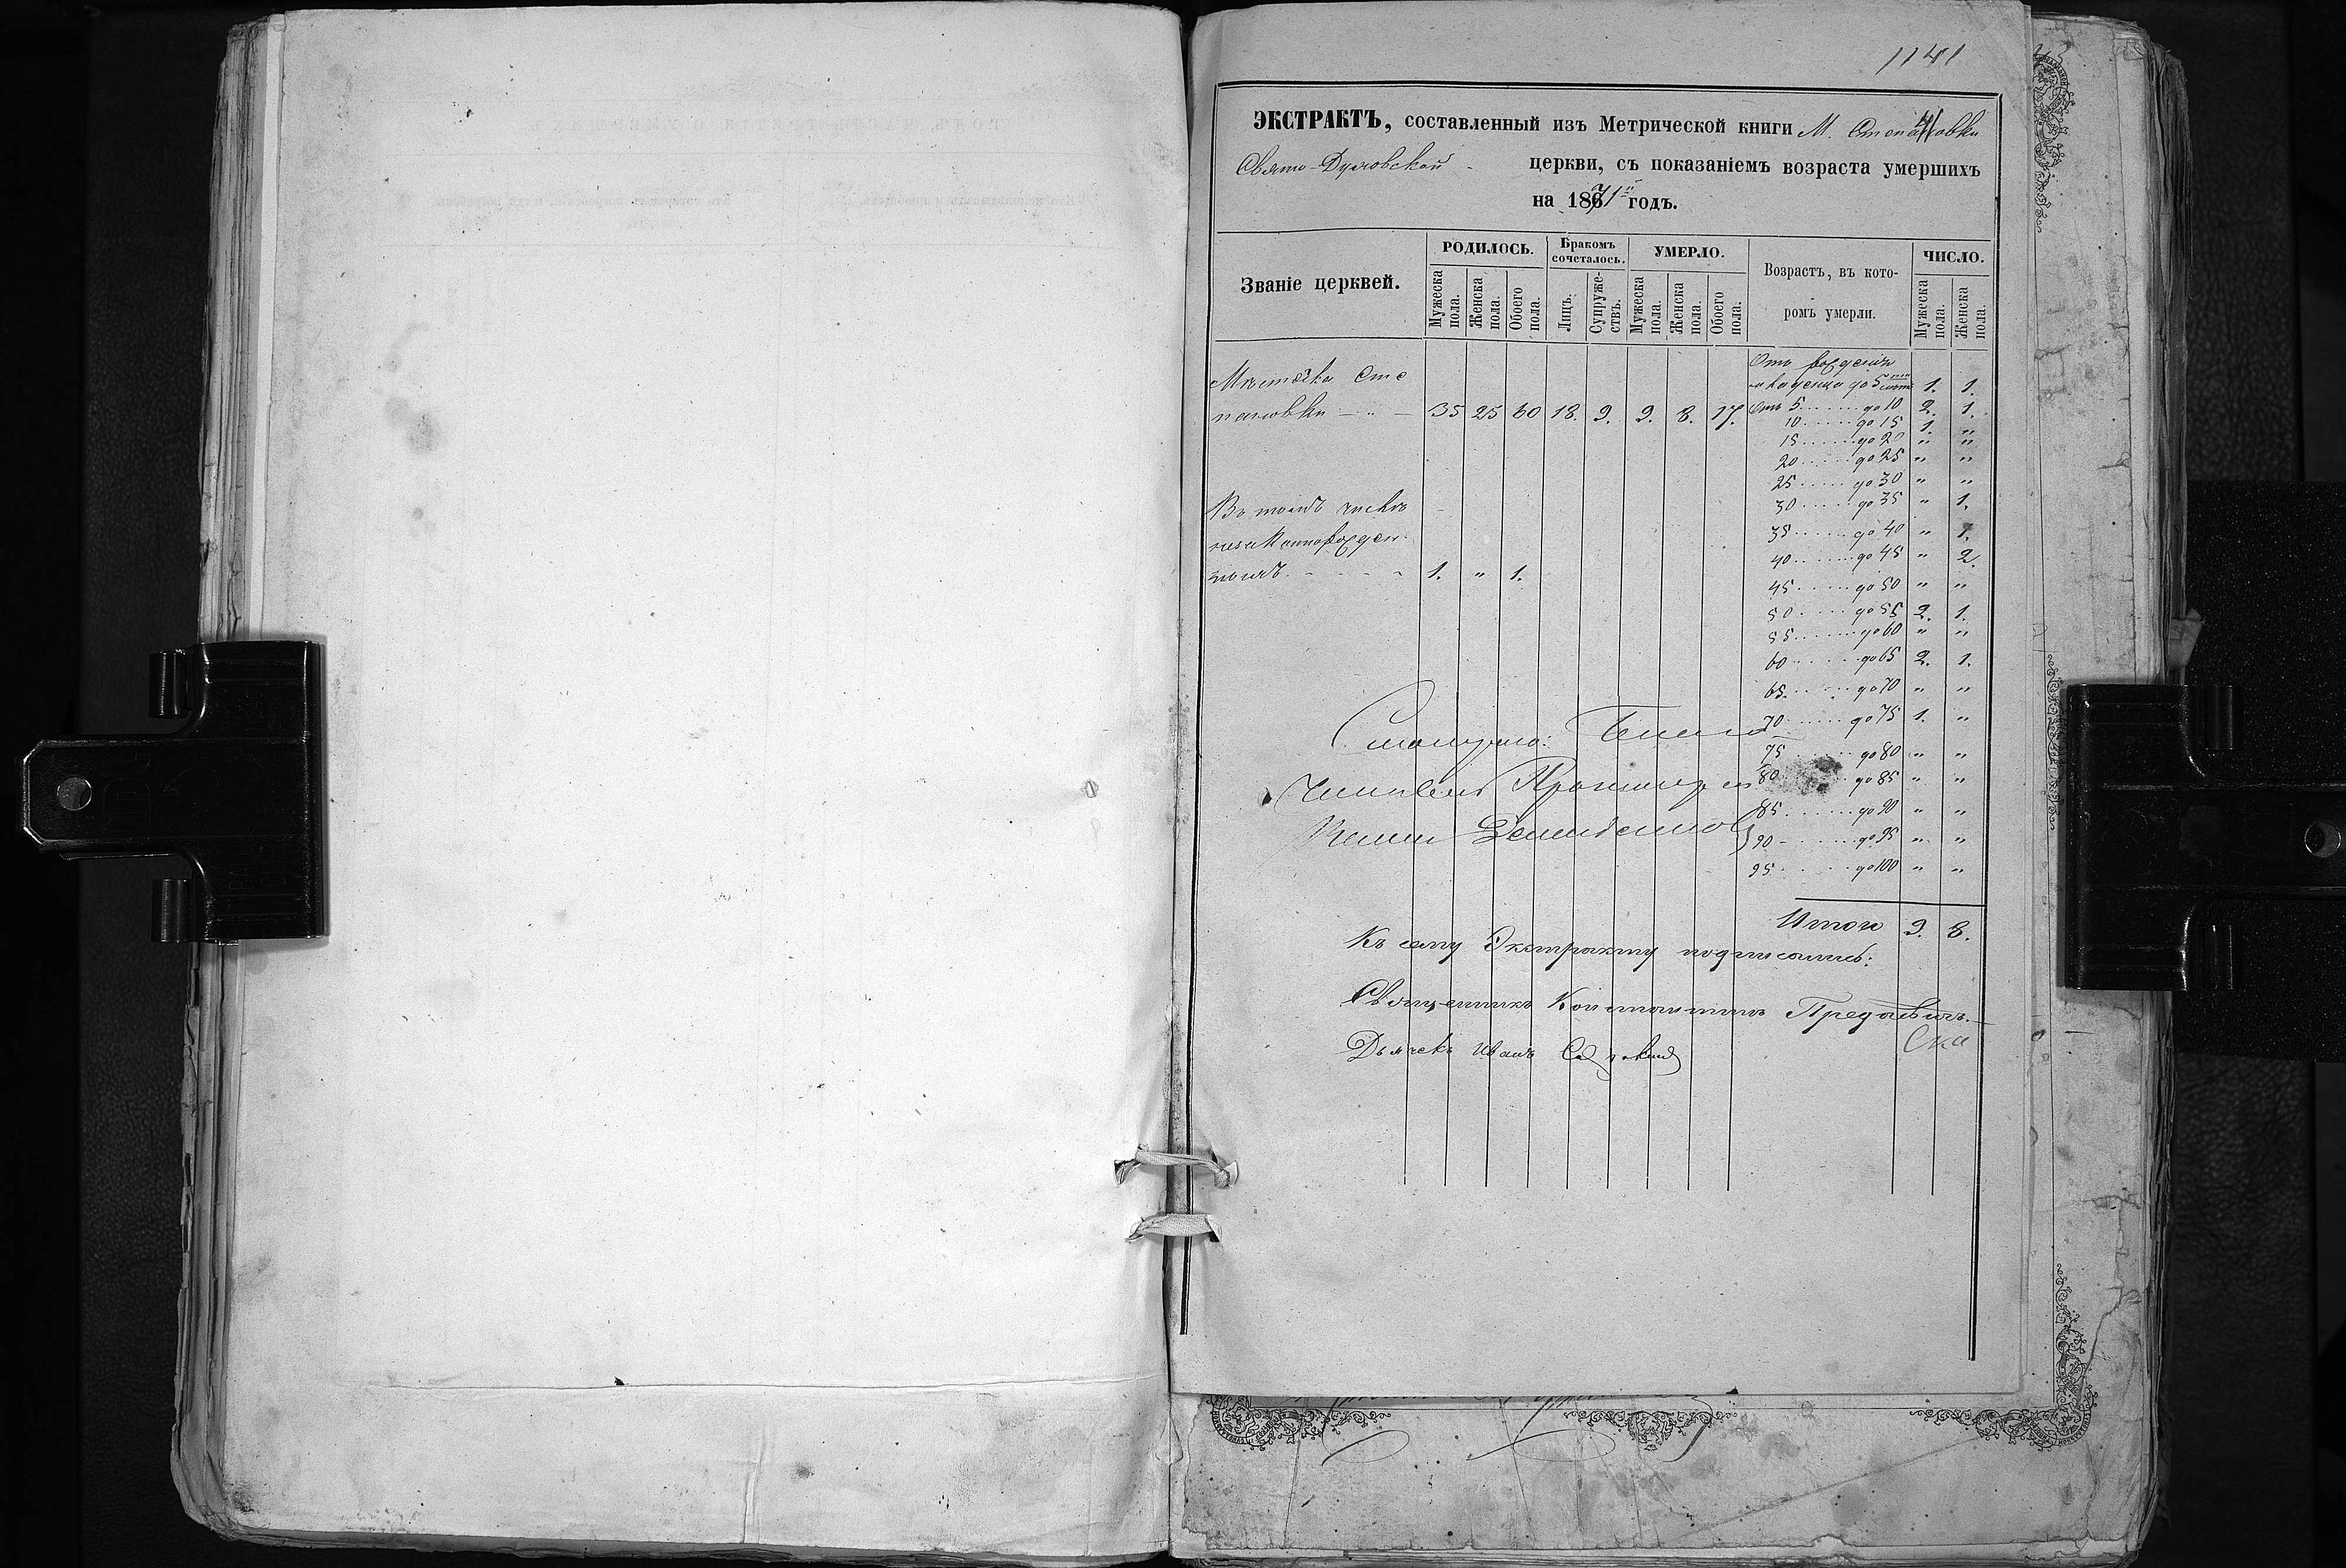 1141
ЭКСТРАКТЪ, составленный изъ Метрической книги М. Степановки
Свято-Духовской церкви, съ показаніемъ возраста умершихъ
на 1871й годъ.
Званіе церквей.
РОДИЛОСЬ.
Мужеска пола.
Женска пола.
Обоего пола.
Бракомъ сочеталось.
Лицъ.
Супружествъ.
УМЕРЛО.
Мужеска пола.
Женска пола.
Обоего пола.
Возрастъ, въ которомъ умерли.
ЧИСЛО.
Мужеска пола.
Женска пола.
Отъ рожденія
младенца до 5 1. 1.
Мѣстечка Сте
пановки — „ — 35 25 60 18. 9. 9. 8. 17.
Отъ 5 до 10 2. 1.
10 до 15 1. „
15 до 20 „ „
20 до 25 „ „
25 до 30 „ „
30 до 35 „ 1.
35 до 40 „ 1.
40 до 45 „ 2.
45 до 50 „ „
50 до 55 2. 1.
55 до 60 „ „
60 до 65 2. 1.
65 до 70 „ „
70 до 75 1. „
75 до 80 „ „
80 до 85 „ „
85 до 90 „ „
90 до 95 „ „
95 до 100 „ „
Въ томъ числѣ
незаконнорожден
ныхъ 1. „ 1.
Итого 9. 8.
Къ сему Экстракту подписались:
Священникъ Константинъ
Дьячекъ Иванъ